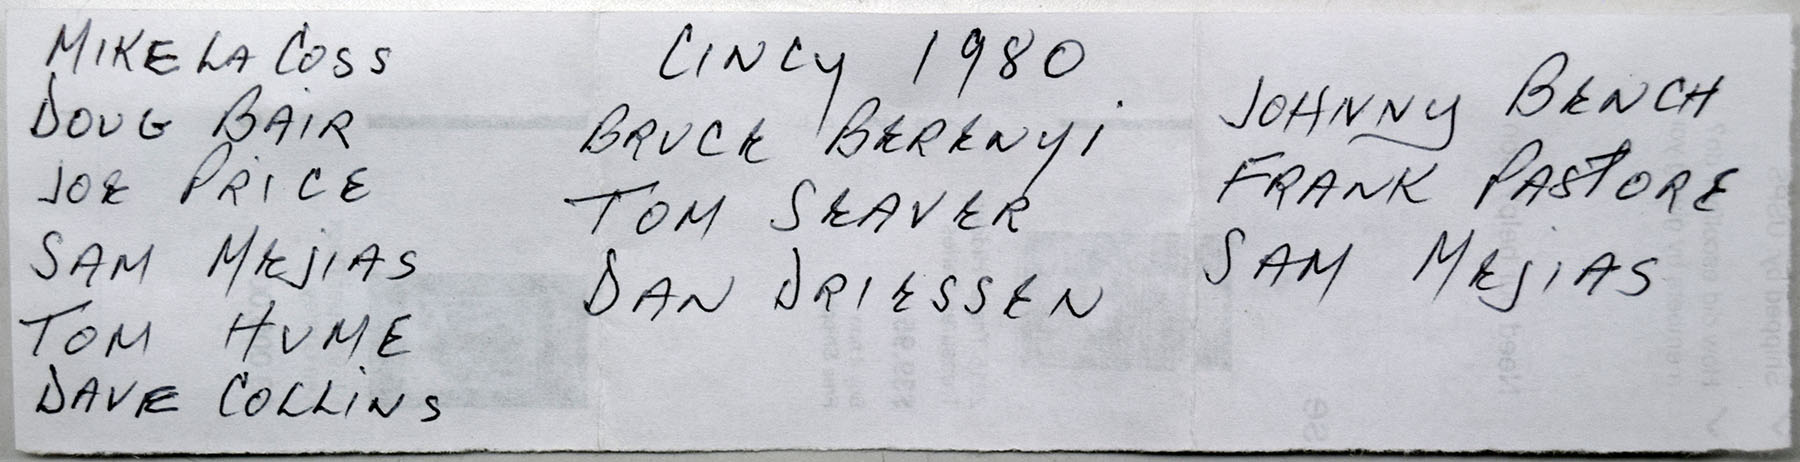 MIKE LA COSS
DOUG BAIR
JOE PRICE
SAM MEJIAS
TOM HUME
DAVE COLLINS
CINCY 1980
BRUCE BERENYI
TOM SEAVER
DAN DRIESSEN
JOHNNY BENCH
FRANK PASTORE
SAM MEJIAS